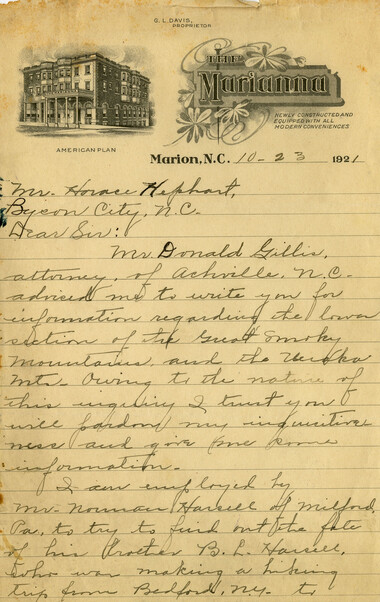 G. L. DAVIS,
PROPRIETOR
THE
Marianna
NEWLY CONSTRUCTED AND
EQUIPPED WITH ALL
MODERN CONVENIENCES
AMERICAN PLAN
Marion, N.C. 10-23 1921
Mr. Horace Hephart,
Bycon City, N.C.
Dear Sir:
Mr Donald Gillis,
attorney, of Ashville, N.C.
advised me to write you for
information regarding the lower
section of the Great Smoky
Mountains and the
Mts. Owing to the nature of
this inquiry I trust you
will pardon my inquisitive
ness and give me some
information.
I am employed by
Mr. Norman Hassell of Milford,
Pa, to try to find out the fate
of his brother B. L. Hassell,
who was making a hiking
trip from Bedford, N.Y. to